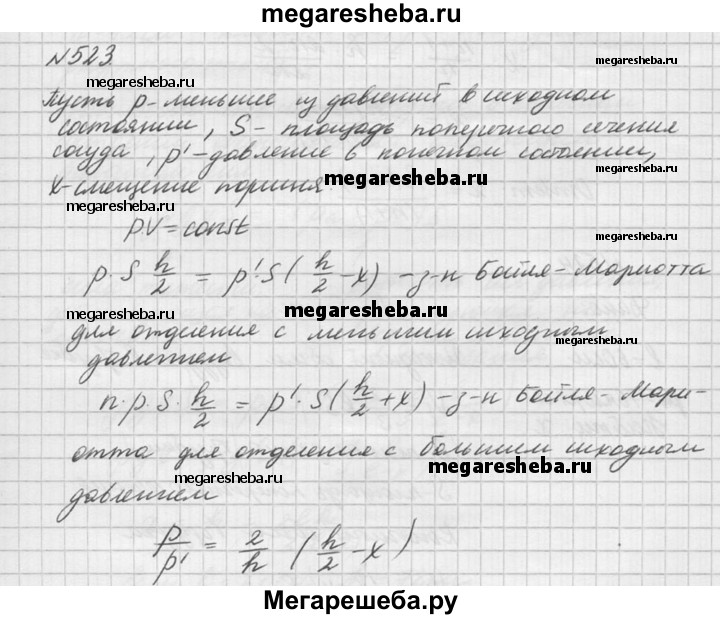 megaresheba.ru
№523.
megaresheba.ru
megaresheba.ru
Пусть p-меньшее из давлений в исходном
состоянии, S - площадь поперечного сечения
сосуда, p' - давление в конечном состоянии,
x-смещение поршня.
megaresheba.ru
megaresheba.ru
pV = const
megaresheba.ru
p·S h/2 = p'·S(h/2 - x) - з-н Бойля-Мариотта
megaresheba.ru
для отделения с меньшим исходным
megaresheba.ru
давлением
n·p·S·h/2 = p'·S(h/2 + x) - з-н Бойля-Мари-
отта для отделения с большим исходным
megaresheba.ru
megaresheba.ru
давлением
p/p' = 2/h (h/2 - x)
megaresheba.ru
megaresheba.ru
Мегарешеба.ру